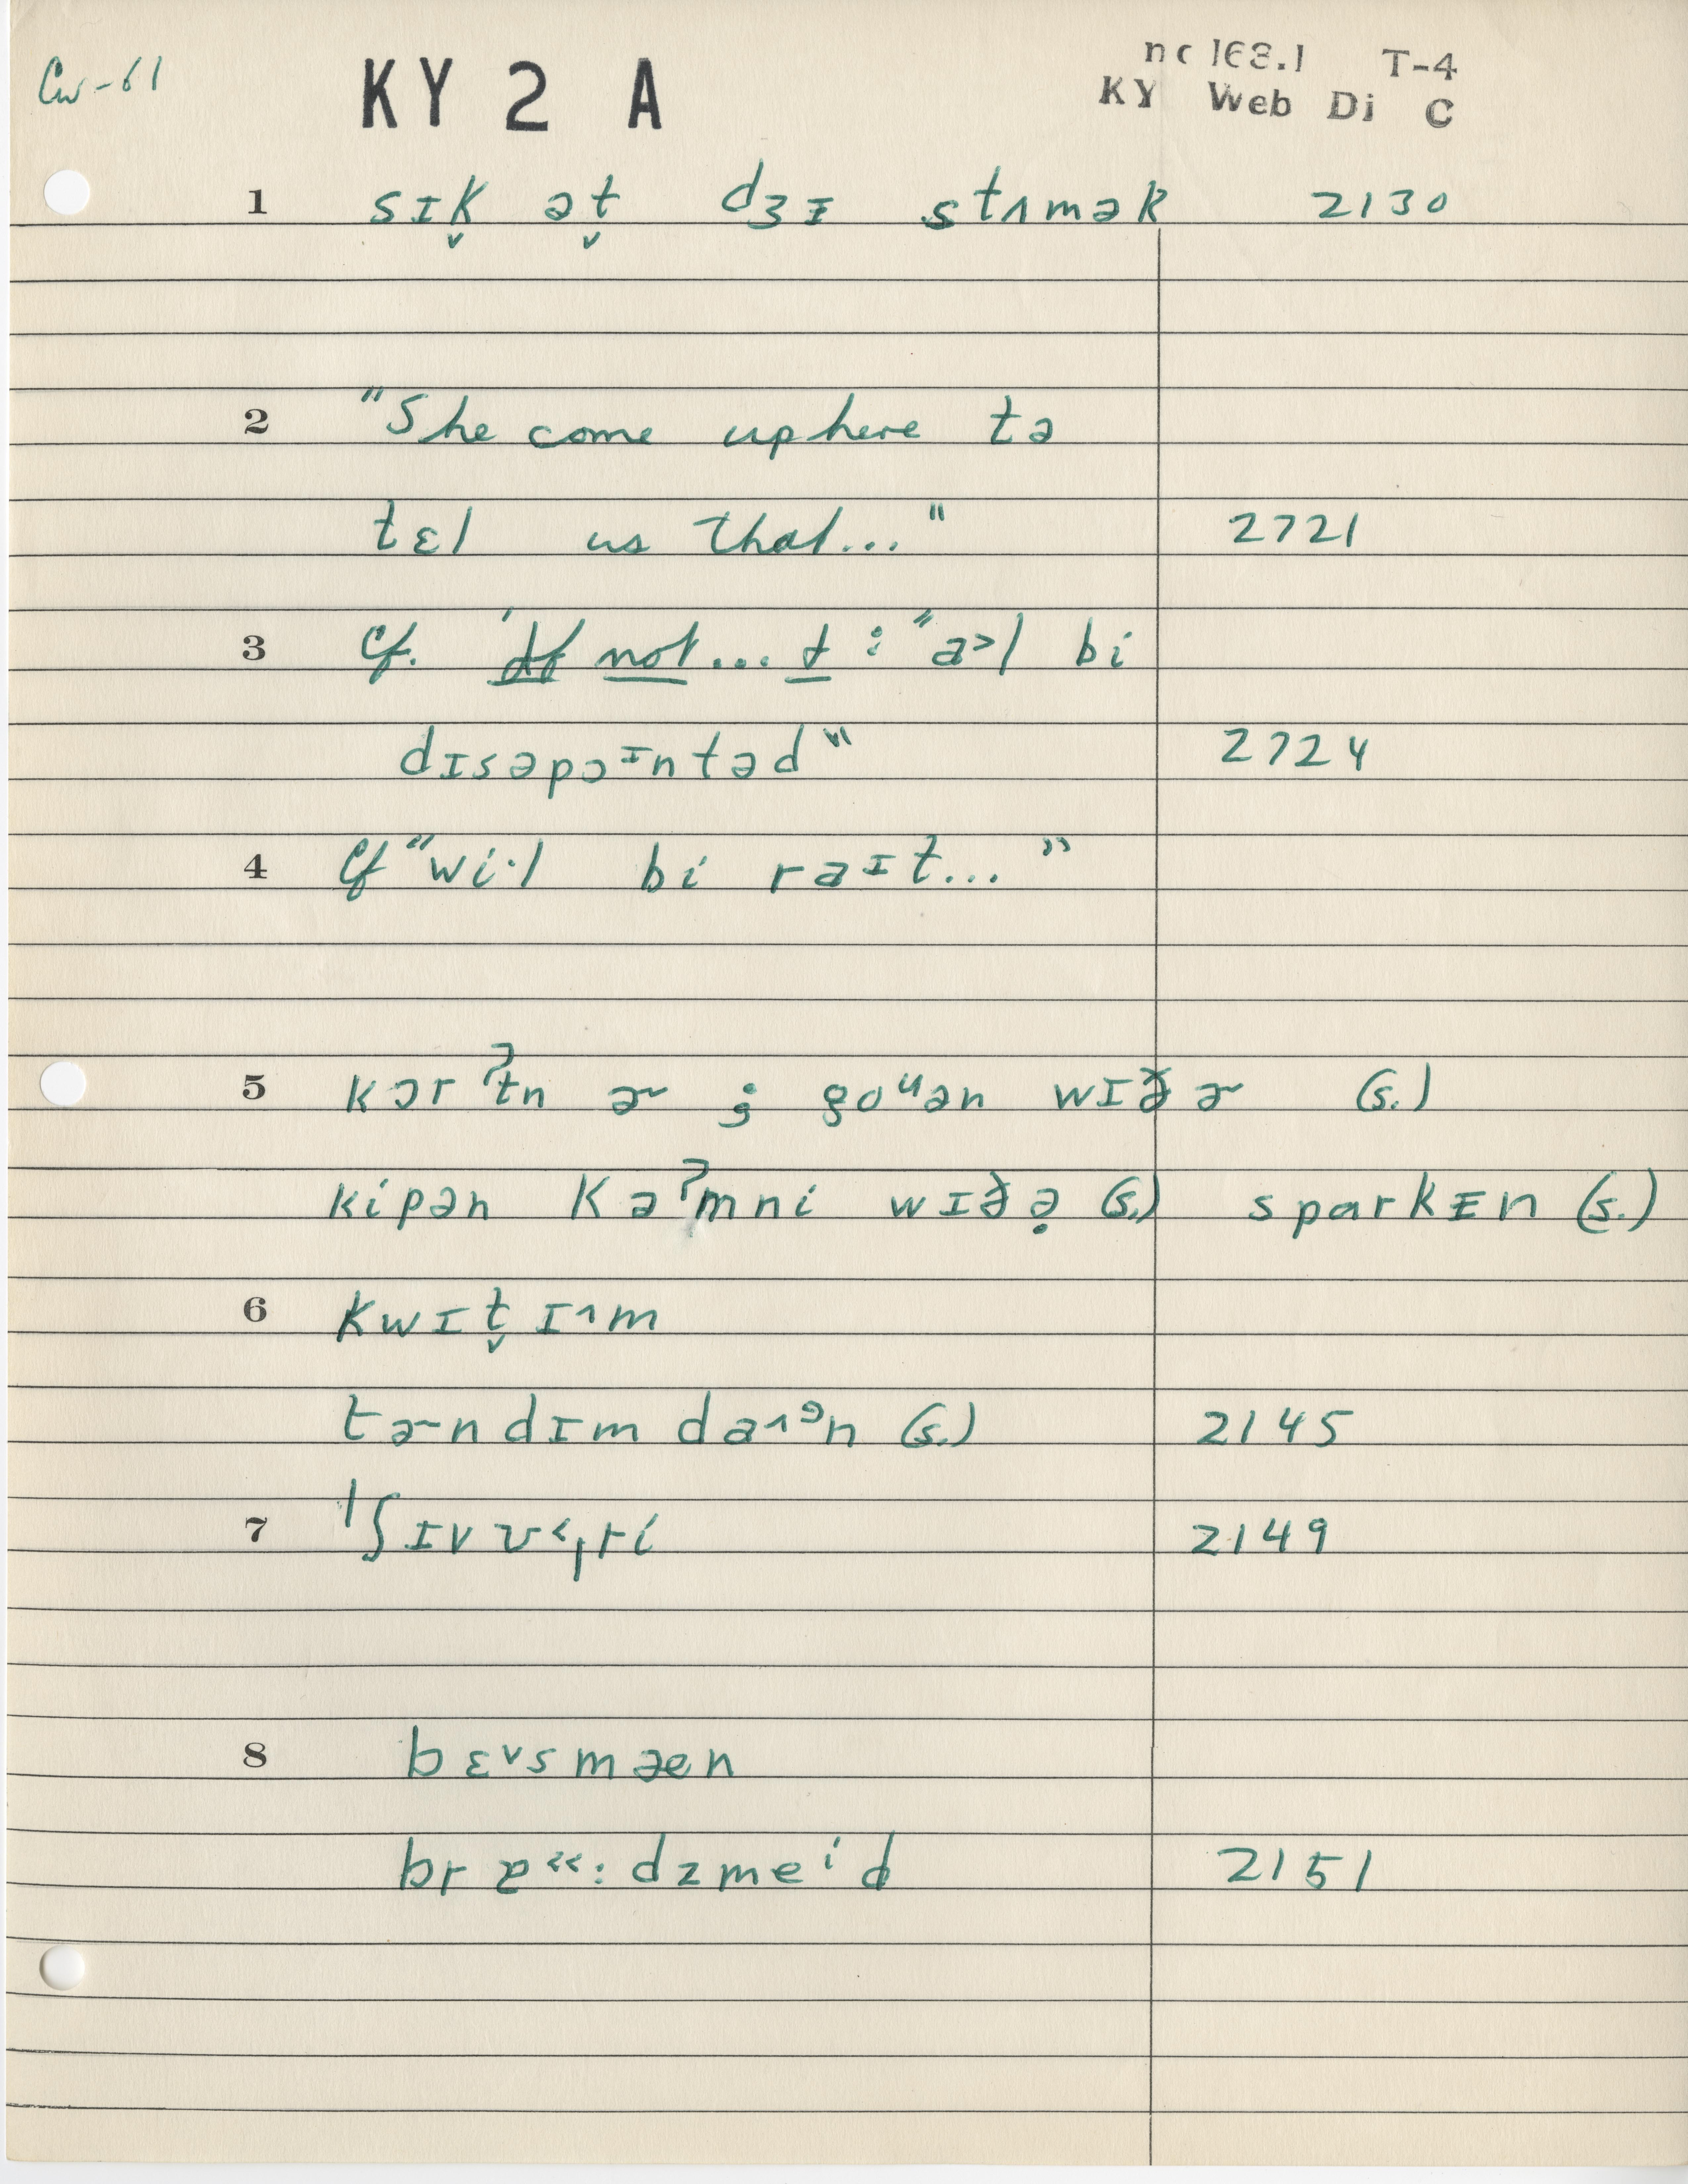 Cw-61 KY 2 A nc 168.1 T-4
KY Web Di C
1 sɪk̬ ət̬ dʒᵻ stʌmək 2130
2 "She come up here tə
tɛl us that..." 2721
3 Cf. 'If not... I : "a>l bi
dɪsəpɔᶦntəd" 2724
4 Cf "wi·l bi raɪt..."
5 kɔrˀtn ɚ ; goᵘən wɪðɚ (s.)
kipən kəˀmni wɪðə̣ (s.) sparkᵻn (s.)
6 kwɪt̬ ɪ^m
tɚndɪm da^ᵊn (s.) 2145
7 ˈʃɪvʊ<ˌri 2149
8 bɛ˅smæn
brɐ<<:dzmeⁱd 2151